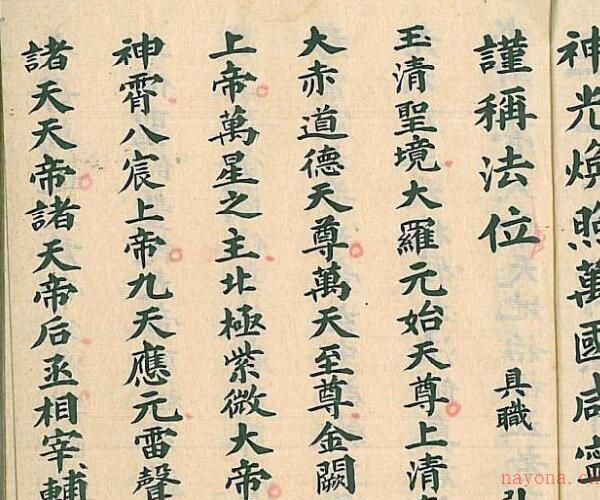 神光煥照萬國咸寧
謹稱法位 具職
玉清聖境大羅元始天尊上清
大赤道德天尊萬天至尊金闕
上帝萬星之主北極紫微大帝
神霄八宸上帝九天應元雷聲
諸天天帝諸天帝后丞相宰輔
nayona.cn